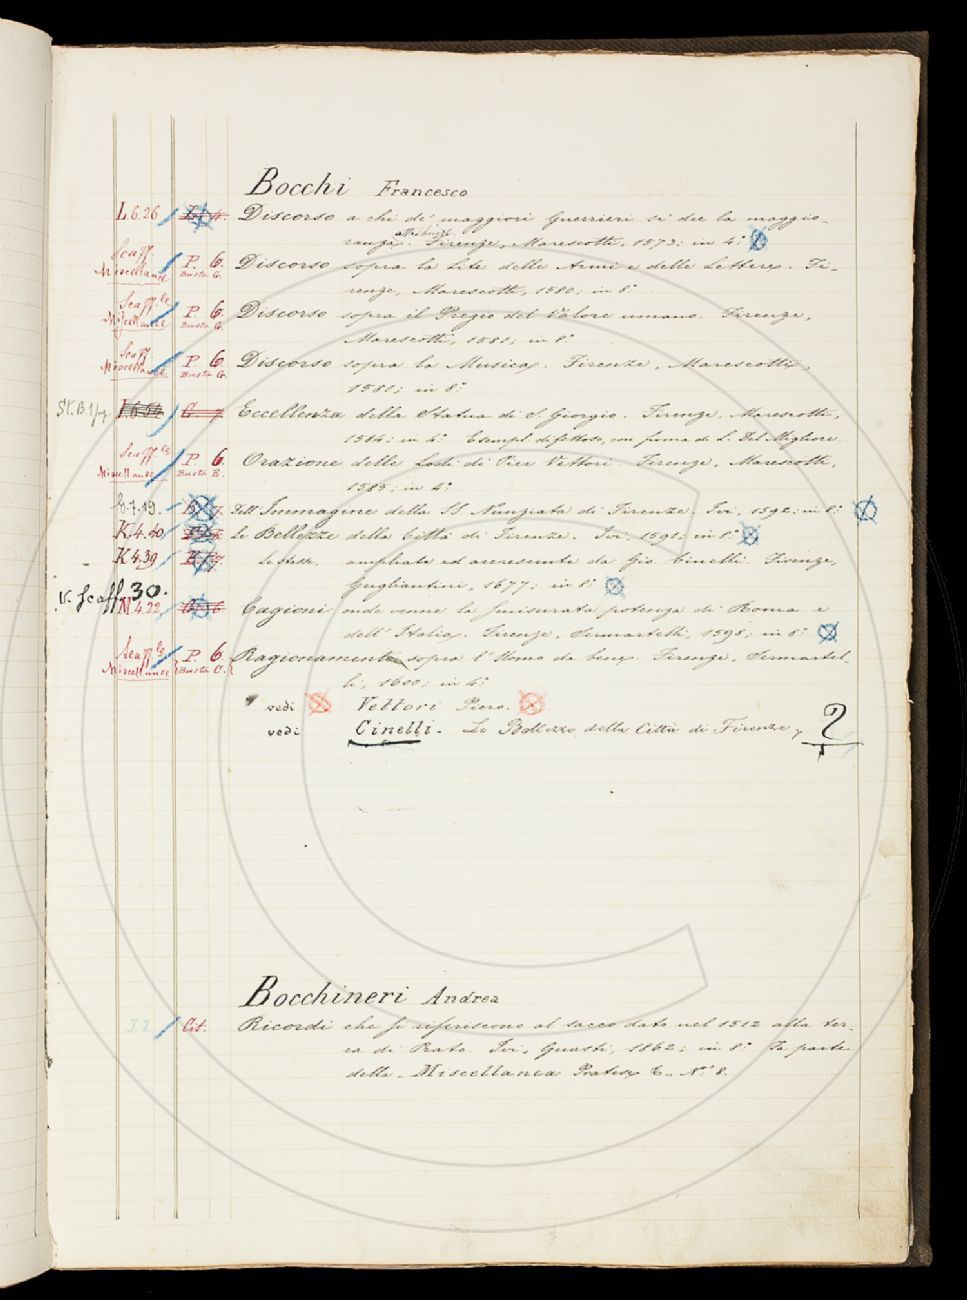 Bocchi Francesco
L.6.26 Discorso a chi de' maggiori Guerrieri si dee la maggio-
ranza. Firenze, Marescotti, 1573; in 4°
Scaff. Miscellanee P. 6. Busta G. Discorso sopra la Lite delle Armi e delle Lettere. Fi-
renze, Marescotti, 1580; in 8°
Scaff.le Miscellanee P. 6. Busta G. Discorso sopra il Pregio del Valore umano. Firenze,
Marescotti, 1581; in 8°
Scaff. Miscellanee P. 6. Busta G. Discorso sopra la Musica. Firenze, Marescotti,
1581; in 8°
Eccellenza della Statua di S. Giorgio. Firenze, Marescotti,
1584; in 4° Esempl. difettoso, con firma di L. Del Migliore.
Scaff.le Miscellanee P. 6. Busta E. Orazione delle Lodi di Pier Vettori. Firenze, Marescotti,
1585; in 4°
6.7.19. Dell'Immagine della SS Nunziata di Firenze. Ivi, 1592; in 8°
K.4.40 Le Bellezze della Città di Firenze. Ivi, 1591; in 8°
K.4.39 Le stesse, ampliate ed accresciute da Gio. Cinelli. Firenze,
Gugliantini, 1677; in 8°
V. Scaff. 30.
M.4.22 Cagioni onde venne la smisurata potenza di Roma e
dell'Italia. Firenze, Sermartelli, 1598; in 8°
Scaff.le Miscellanee P. 6. Busta C. Ragionamento sopra l'Uomo da bene. Firenze, Sermartel-
li, 1600; in 4°
vedi Vettori Piero.
vedi Cinelli. Le Bellezze della Città di Firenze, 2
Bocchineri Andrea
J.2 Cit. Ricordi che si riferiscono al sacco dato nel 1512 alla ter-
ra di Prato. Ivi, Guasti, 1862; in 8° Fa parte
della Miscellanea Pratese N.° 8.